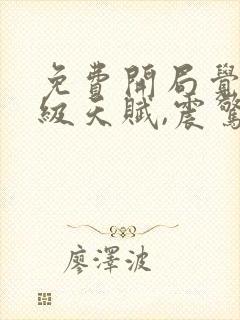 免費開局覺
級天賦,震驚
廖澤波